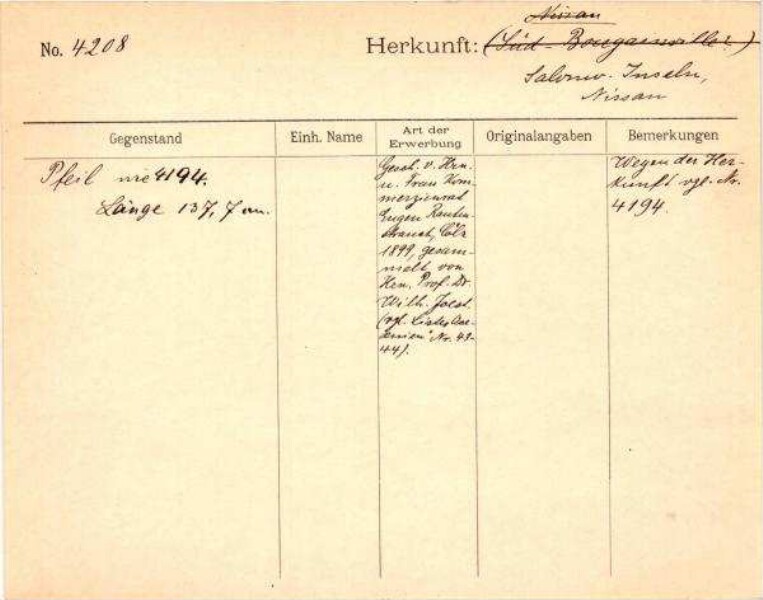 Nissan
No. 4208
Herkunft: (Süd-Bougainville.)
Salomo-Inseln,
Nissan
Gegenstand
Einh. Name
Art der
Erwerbung
Originalangaben
Bemerkungen
Pfeil wie 4194.
Länge 137,7 cm.
Gesch. v. Hrn.
u. Frau Kom-
merzienrat
Eugen Rauten-
strauch, Cöln
1899, gesam-
melt von
Hrn. Prof. Dr.
Wilh. Joest.
(vgl. Liste „Oze-
anien" Nr. 43-
44).
Wegen der Her-
kunft vgl. Nr.
4194.